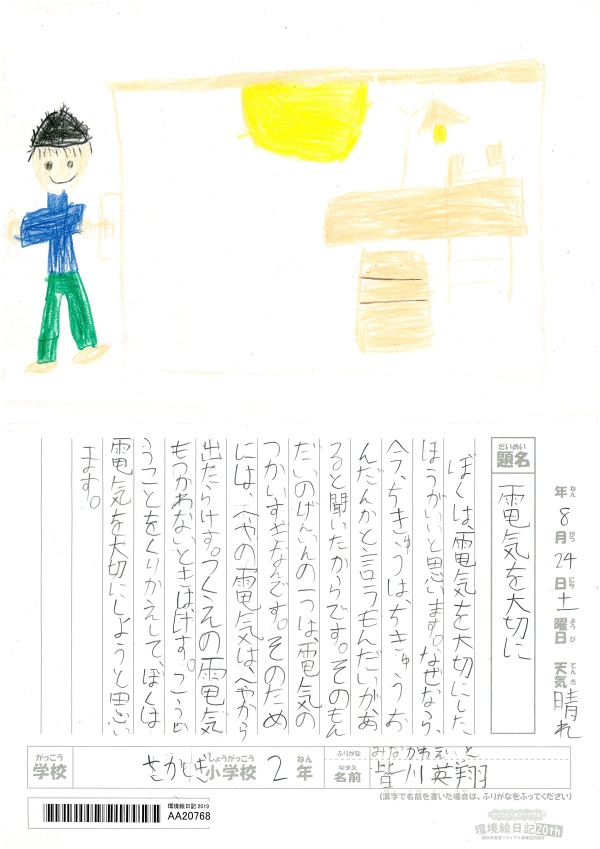 年8月24日土曜日 天気晴れ
ねん がつ にち ようび てんき
だいめい
題名
電気を大切に
ぼくは、電気を大切にした
ほうがいいと思います。なぜなら、
今、ちきゅうは、ちきゅうお
んだんかと言うもんだいがあ
ると聞いたからです。そのもん
だいのげんいんの一つは、電気の
つかいすぎなんです。そのため
には、へやの電気は、へやから
出たらけす。つくえの電気
もつかわないときはけす。こうい
うことをくりかえして、ぼくは
電気を大切にしようと思い
ます。
がっこう しょうがっこう ねん
学校 さかぎ小学校 2年
ふりがな みなかわえいと
なまえ
名前 皆川英翔
(漢字で名前を書いた場合は、ふりがなをふってください)
環境絵日記2019
AA20768
環境絵日記20th